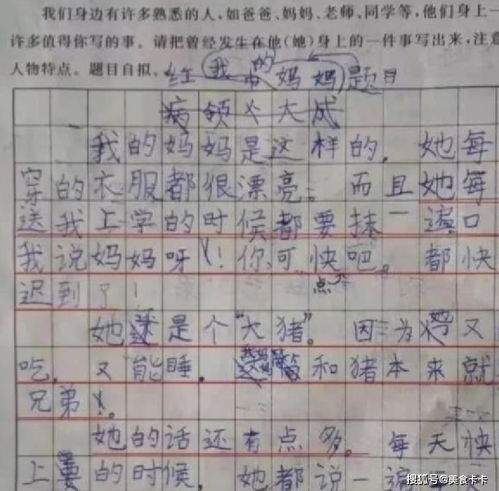 我们身边有许多熟悉的人，如爸爸、妈妈、老师、同学等，他们身上一
许多值得你写的事。请把曾经发生在他（她）身上的一件事写出来，注意
人物特点。题目自拟。
红我的妈妈题目
病领大成
我的妈妈是这样的，她每
穿的衣服都很漂亮。而且她每
送我上学的时候都要抹一遍口
我说妈妈呀！你可快点吧。都快
迟到了！
她还是个“大猪”。因为又
吃，又能睡。和猪本来就
兄弟。
她的话还有点多。每天快
上的时候，她都说一遍
搜狐号@美食卡卡